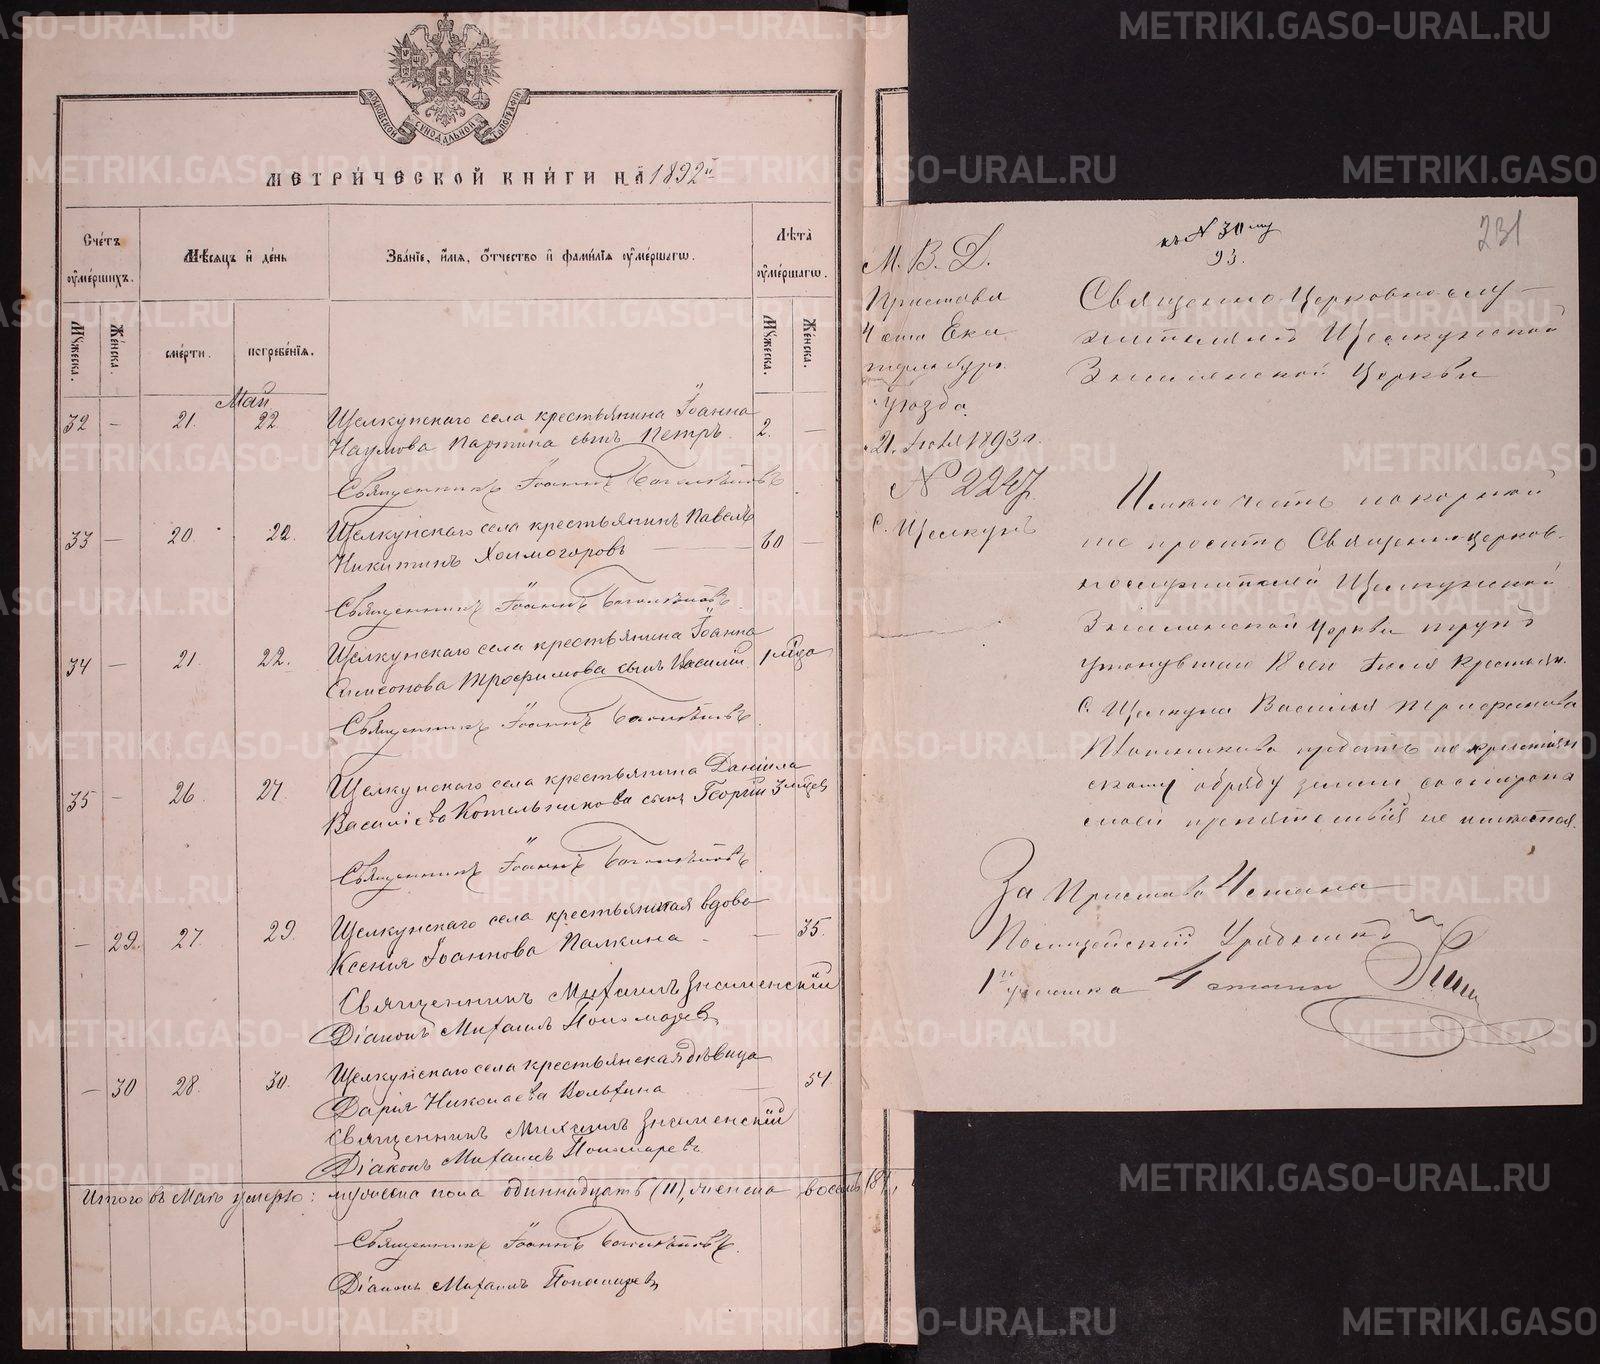 МОСКОВСКОЙ СѴНОДАЛЬНОЙ ТѴПОГРАФІИ
МЕТРИ́ЧЕСКОЙ КНИ́ГИ НА 1892 й
Сче́тъ оу҆ме́ршихъ.
Мѣ́сяцъ и҆ де́нь
Зва́нїе, и҆́мя, ѻ҆́тчество и҆ фами́лїя оу҆ме́ршагѡ.
Лѣ́та оу҆ме́ршагѡ.
Мꙋ́жеска.
Же́нска.
сме́рти.
погребе́нїя.
Мꙋ́жеска.
Же́нска.
Май
32 - 21. 22. Щелкунскаго села крестьянина Іоанна
Наумова Партина сынъ Петръ. 2. —
Священникъ Іоаннъ
33 — 20 22. Щелкунскаго села крестьянинъ Павелъ
Никитинъ Холмогоровъ — 60 —
Священникъ Іоаннъ
34 — 21. 22. Щелкунскаго села крестьянина Іоанна
Симеонова Трофимова сынъ Василій 1 года
Священникъ Іоаннъ
35 - 26. 27. Щелкунскаго села крестьянина Даніила
Василіева Котельникова сынъ Георгій 3 мѣсяц
Священникъ Іоаннъ
— 29. 27. 29. Щелкунскаго села крестьянская вдова
Ксенія Іоаннова Палкина — 35.
Священникъ Михаилъ Знаменскій
Діаконъ Михаилъ Пономарев
— 30 28. 30. Щелкунскаго села крестьянская дѣвица
Дарія Николаева Вольхина — 54
Священникъ Михаилъ Знаменскій
Діаконъ Михаилъ Пономаревъ
Итого въ Маѣ умерло: мужеска пола одиннадцать (11), женска восемь (8),
Священникъ Іоаннъ
Діаконъ Михаилъ Пономарев
231
къ № 30 му
93.
М. В. Д.
Пристава
4 стана Ека
теринбург.
Уѣзда
21. Іюля 1893 г.
№ 2247
С. Щелкунъ
Священно Церковнослу-
жителямъ Щелкунской
Знаменской Церкви
Имѣю честь покорнѣй
ше просить Священноцерков-
нослужителей Щелкунской
Знаменской Церкви трупъ
утонувшаго 18 сего Іюля крестьян.
С. Щелкуна Василья Трифонова
предать по христіан
скому обряду земли со стороны
моей препятствій не имѣется.
За Пристава 4 стана
Полицейскій Урядникъ
1 го участка 4 стана
METRIKI.GASO-URAL.RU